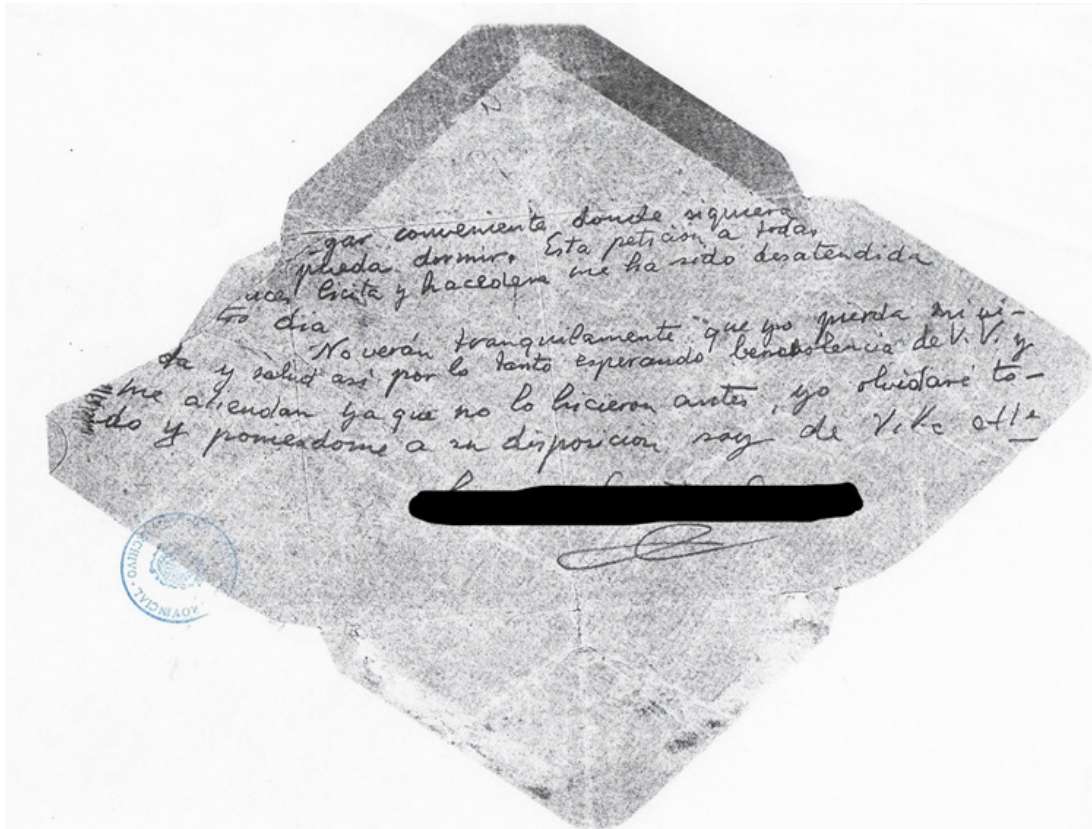 -gar conveniente donde siquiera
pueda dormir. Esta petición a todas
uces licita y hacedera me ha sido desatendida
to dia
No verán tranquilamente que yo pierda mi vi-
da y salud así por lo tanto esperando benebolencia de V.V. y
me atiendan ya que no lo hicieron antes, yo olvidaré to-
do y poniendome a su disposicion soy de V.V.
ARCHIVO
PROVINCIAL